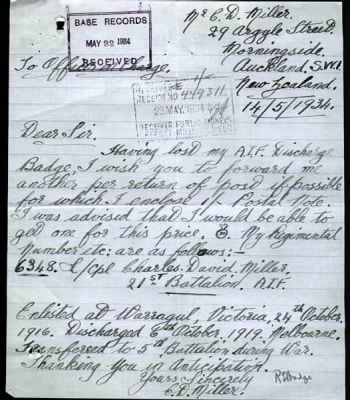 Mr C. D. Miller.
29 Argyle Street.
Morningside.
Auckland. S.W.1.
New Zealand.
14/5/1934.
BASE RECORDS
MAY 22 1934
RECEIVED
To Officer in Charge.
RECEIPT No 449311
22 MAY 1934
RECEIVER PUBLIC MONEYS
Dear Sir.
Having lost my A.I.F. Discharge
Badge, I wish you to forward me
another per return of post if possible
for which I enclose 1/- Postal Note.
I was advised that I would be able to
get one for this price. My Regimental
Number etc: are as follows:-
6348. L/Cpl Charles David Miller.
21st Battalion. A.I.F.
Enlisted at Warragul, Victoria, 24th October.
1916. Discharged 6th October. 1919. Melbourne.
Transferred to 5th Battalion during War.
Thanking you in Anticipation.
Yours Sincerely
C. D. Miller.